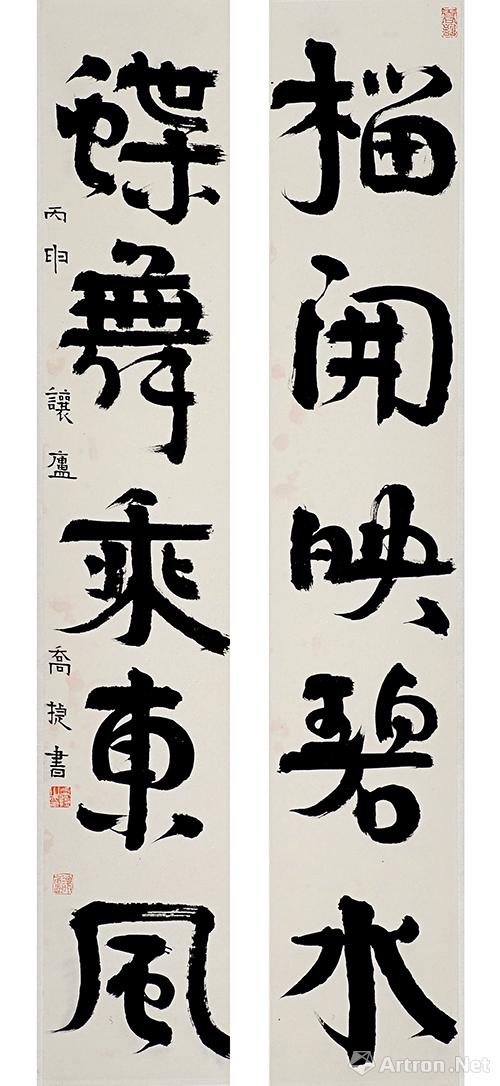 榴開映碧水
蝶舞乘東風
丙申 讓廬 喬捷書
Artron.Net